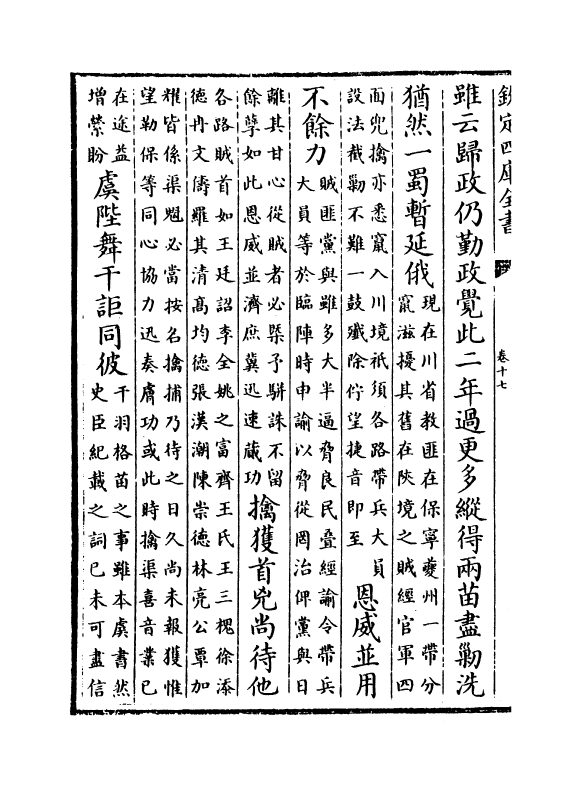 欽定四庫全書
卷十七
雖云歸政仍勤政覺此二年過更多縱得兩苗盡勦洗
猶然一蜀暫延俄
現在川省教匪在保寧夔州一帶分
竄滋擾其舊在陜境之賊經官軍四
面兜擒亦悉竄入川境祇須各路帶兵大員
設法截勦不難一鼓殲除佇望捷音即至
恩威並用
不餘力
賊匪黨與雖多大半逼脅良民疊經諭令帶兵
大員等於臨陣時申諭以脅從罔治俾黨與日
離其甘心從賊者必槩予駢誅不留
餘孽如此恩威並濟庶冀迅速蕆功
擒獲首兇尚待他
各路賊首如王廷詔李全姚之富齊王氏王三槐徐添
德冉文儔羅其清高均德張漢潮陳崇德林亮公覃加
耀皆係渠魁必當按名擒捕乃待之日久尚未報獲惟
望勒保等同心協力迅奏膚功或此時擒渠喜音業已
在途益
增縈盼
虞陛舞干詎同彼
干羽格苗之事雖本虞書然
史臣紀載之詞已未可盡信